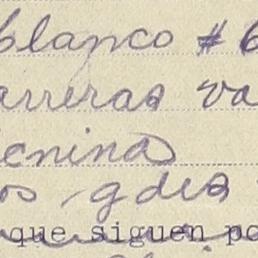 blanco # 6
arreras va
enina
os, gdes
que siguen po